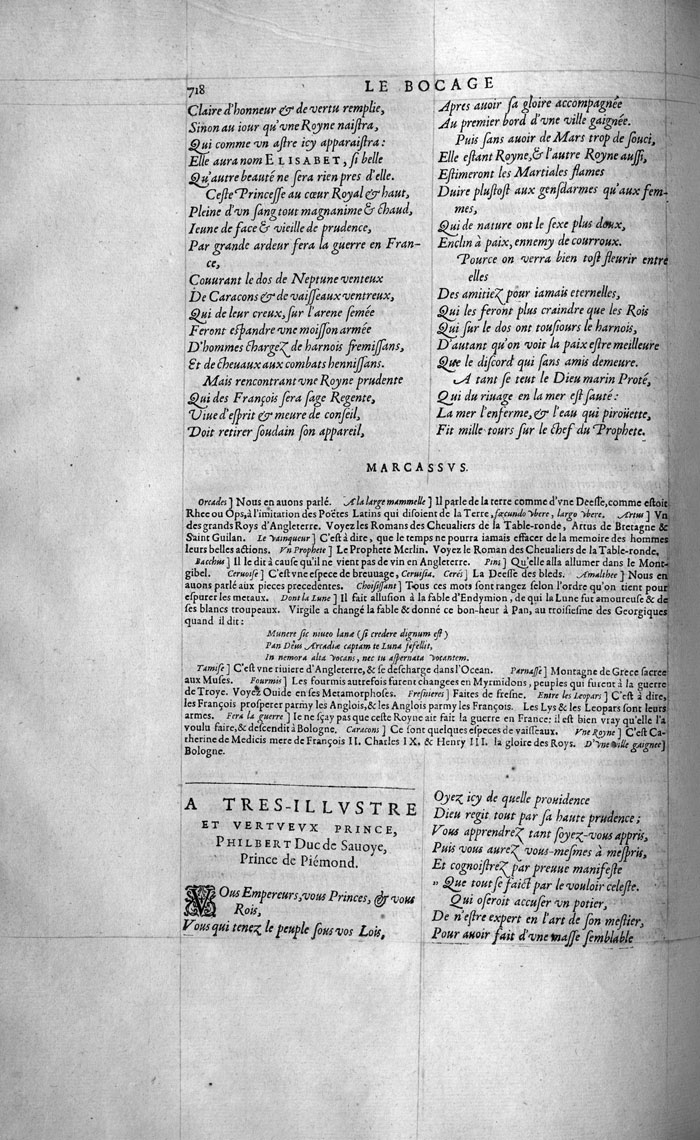 718
LE BOCAGE
Claire d'honneur & de vertu remplie,
Sinon au iour qu'vne Royne naistra,
Qui comme vn astre icy apparaistra:
Elle aura nom ELISABET, si belle
Qu'autre beauté ne sera rien pres d'elle.
Ceste Princesse au cœur Royal & haut,
Pleine d'vn sang tout magnanime & chaud,
Ieune de face & vieille de prudence,
Par grande ardeur fera la guerre en Fran-
ce,
Couurant le dos de Neptune venteux
De Caracons & de vaisseaux ventreux,
Qui de leur creux, sur l'arene semée
Feront espandre vne moisson armée
D'hommes chargez de harnois fremissans,
Et de cheuaux aux combats hennissans.
Mais rencontrant vne Royne prudente
Qui des François sera sage Regente,
Viue d'esprit & meure de conseil,
Doit retirer soudain son appareil,
Apres auoir sa gloire accompagnée
Au premier bord d'vne ville gaignée.
Puis sans auoir de Mars trop de souci,
Elle estant Royne, & l'autre Royne aussi,
Estimeront les Martiales flames
Duire plustost aux gensdarmes qu'aux fem-
mes,
Qui de nature ont le sexe plus doux,
Enclin à paix, ennemy de courroux.
Pource on verra bien tost fleurir entre
elles
Des amitiez pour iamais eternelles,
Qui les feront plus craindre que les Rois
Qui sur le dos ont tousiours le harnois,
D'autant qu'on voit la paix estre meilleure
Que le discord qui sans amis demeure.
A tant se teut le Dieu marin Proté,
Qui du riuage en la mer est sauté:
La mer l'enferme, & l'eau qui piroüette,
Fit mille tours sur le chef du Prophete.
MARCASSVS.
Orcades] Nous en auons parlé. A la large mammelle] Il parle de la terre comme d'vne Deesse, comme estoit
Rhee ou Ops, à l'imitation des Poëtes Latins qui disoient de la Terre, fæcundo vbere, largo vbere. Artus] Vn
des grands Roys d'Angleterre. Voyez les Romans des Cheualiers de la Table-ronde, Artus de Bretagne &
Saint Guilan. Le vainqueur] C'est à dire, que le temps ne pourra iamais effacer de la memoire des hommes
leurs belles actions. Vn Prophete] Le Prophete Merlin. Voyez le Roman des Cheualiers de la Table-ronde.
Bacchus] Il le dit à cause qu'il ne vient pas de vin en Angleterre. Pins] Qu'elle alla allumer dans le Mont-
gibel. Ceruoise] C'est vne espece de breuuage, Ceruisia. Cerés] La Deesse des bleds. Amalthee] Nous en
auons parlé aux pieces precedentes. Choisissant] Tous ces mots sont rangez selon l'ordre qu'on tient pour
espurer les metaux. Dont la Lune] Il fait allusion à la fable d'Endymion, de qui la Lune fut amoureuse & de
ses blancs troupeaux. Virgile a changé la fable & donné ce bon-heur à Pan, au troisiesme des Georgiques
quand il dit:
Munere sic niueo lanæ (si credere dignum est)
Pan Deus Arcadiæ captam te Luna fefellit,
In nemora alta vocans, nec tu aspernata vocantem.
Tamise] C'est vne riuiere d'Angleterre, & se descharge dans l'Ocean. Parnasse] Montagne de Grece sacree
aux Muses. Fourmis] Les fourmis autrefois furent changees en Myrmidons, peuples qui furent à la guerre
de Troye. Voyez Ouide en ses Metamorphoses. Fresnieres] Faites de fresne. Entre les Leopars] C'est à dire,
les François prosperer parmy les Anglois, & les Anglois parmy les François. Les Lys & les Leopars sont leurs
armes. Fera la guerre] Ie ne sçay pas que ceste Royne ait fait la guerre en France: il est bien vray qu'elle l'a
voulu faire, & descendit à Bologne. Caracons] Ce sont quelques especes de vaisseaux. Vne Royne] C'est Ca-
therine de Medicis mere de François II. Charles IX. & Henry III. la gloire des Roys. D'vne ville gaignee]
Bologne.
A TRES-ILLVSTRE
ET VERTVEVX PRINCE,
PHILBERT Duc de Sauoye,
Prince de Piémond.
VOus Empereurs, vous Princes, & vous
Rois,
Vous qui tenez le peuple sous vos Lois,
Oyez icy de quelle prouidence
Dieu regit tout par sa haute prudence;
Vous apprendrez tant soyez-vous appris,
Puis vous aurez vous-mesmes à mespris,
Et cognoistrez par preuue manifeste
" Que tout se faict par le vouloir celeste.
Qui oseroit accuser vn potier,
De n'estre expert en l'art de son mestier,
Pour auoir fait d'vne masse semblable